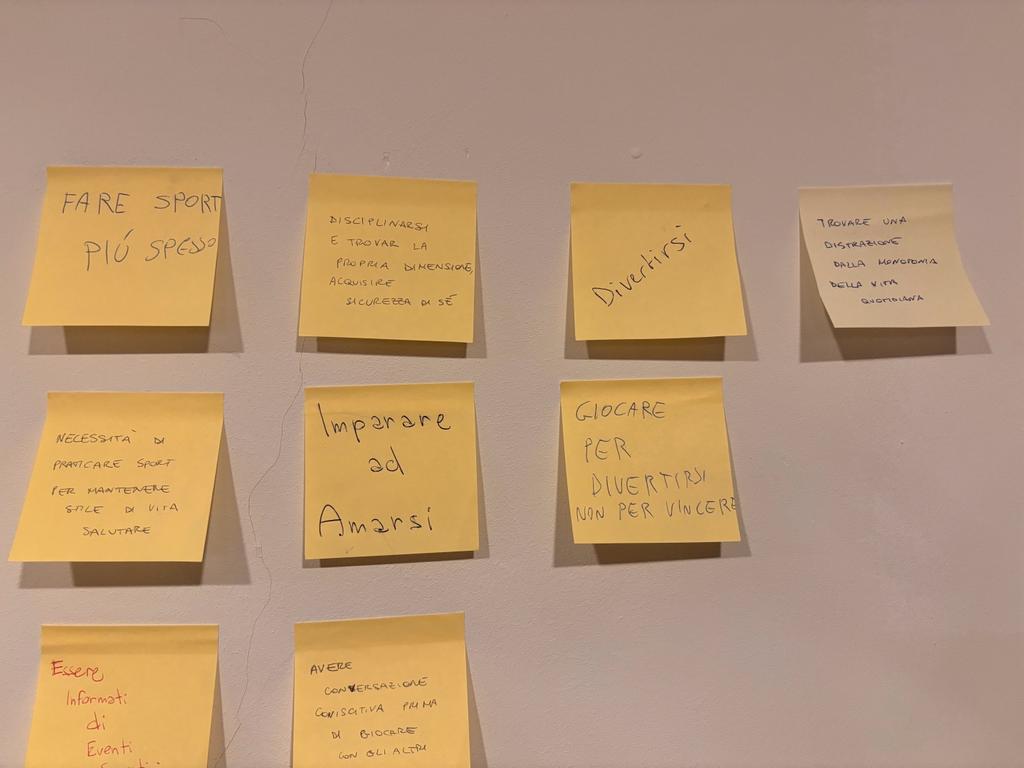 FARE SPORT
PIÚ SPESSO
DISCIPLINARSI
E TROVAR LA
PROPRIA DIMENSIONE,
ACQUISIRE
SICUREZZA DI SÉ
Divertirsi
TROVARE UNA
DISTRAZIONE
DALLA MONOTONIA
DELLA VITA
QUOTIDIANA
NECESSITÀ DI
PRATICARE SPORT
PER MANTENERE
STILE DI VITA
SALUTARE
Imparare
ad
Amarsi
GIOCARE
PER
DIVERTIRSI
NON PER VINCERE
Essere
Informati
di
Eventi
AVERE
CONVERSAZIONE
CONISCITIVA PRIMA
DI GIOCARE
CON GLI ALTRI